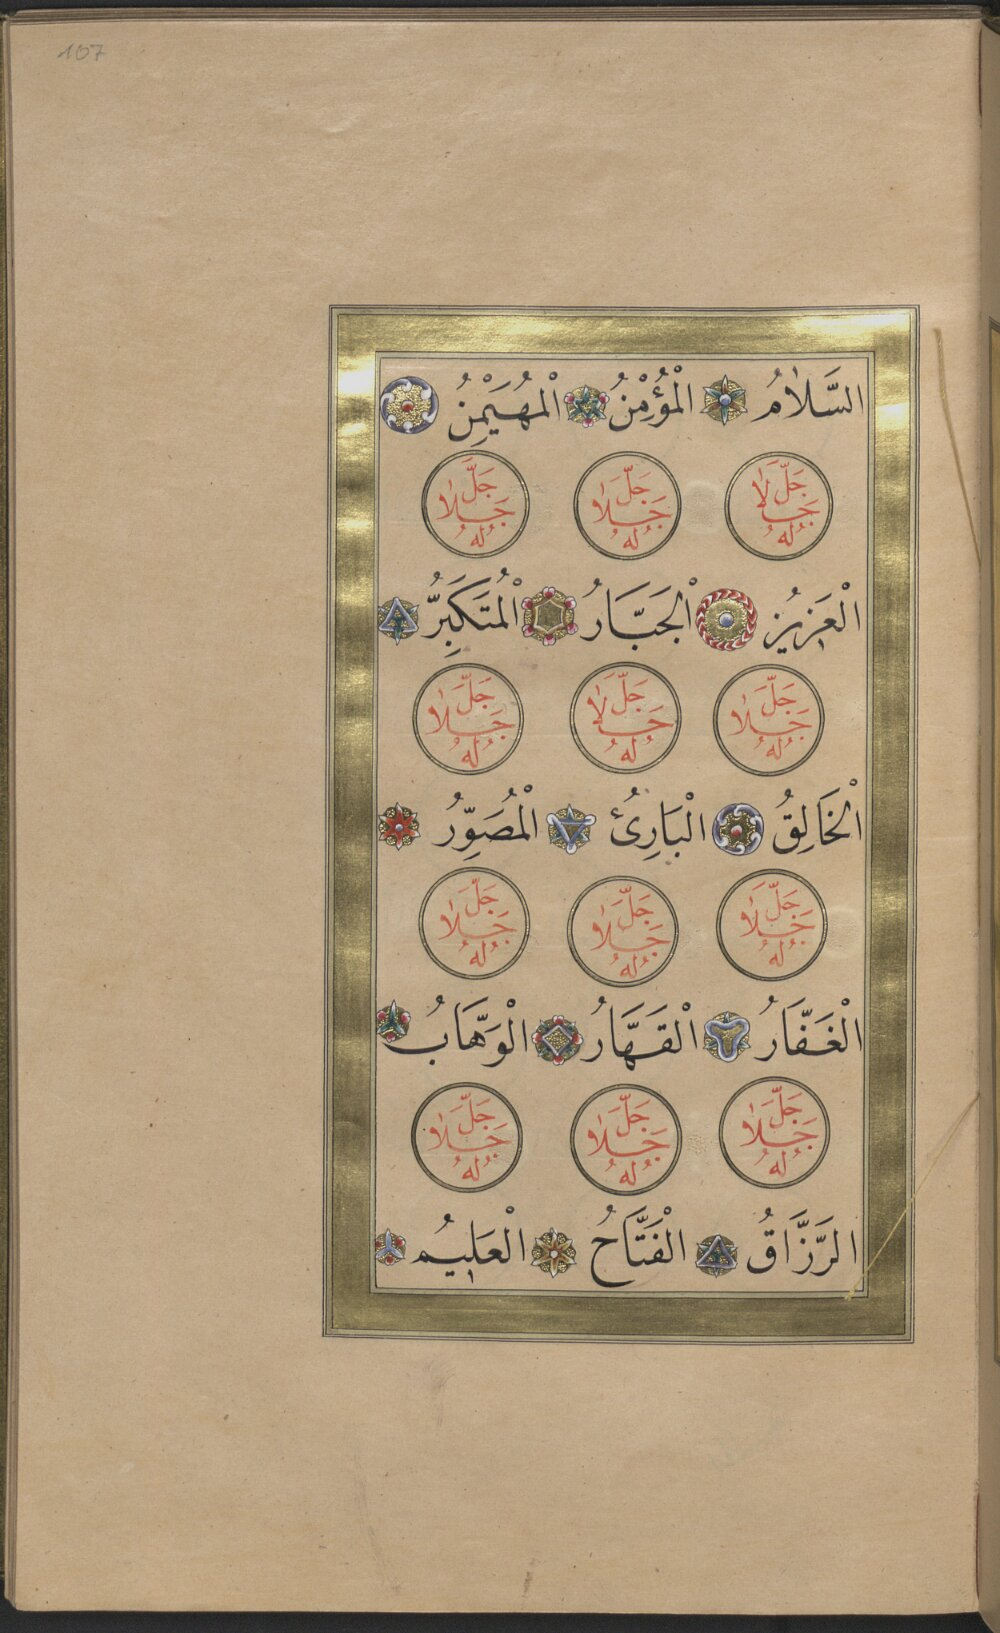 107
السَّلَامُ الْمُؤْمِنُ الْمُهَيْمِنُ
جَلَّ جَلَالُهُ جَلَّ جَلَالُهُ جَلَّ جَلَالُهُ
الْعَزِيزُ الْجَبَّارُ الْمُتَكَبِّرُ
جَلَّ جَلَالُهُ جَلَّ جَلَالُهُ جَلَّ جَلَالُهُ
الْخَالِقُ الْبَارِئُ الْمُصَوِّرُ
جَلَّ جَلَالُهُ جَلَّ جَلَالُهُ جَلَّ جَلَالُهُ
الْغَفَّارُ الْقَهَّارُ الْوَهَّابُ
جَلَّ جَلَالُهُ جَلَّ جَلَالُهُ جَلَّ جَلَالُهُ
الرَّزَّاقُ الْفَتَّاحُ الْعَلِيمُ